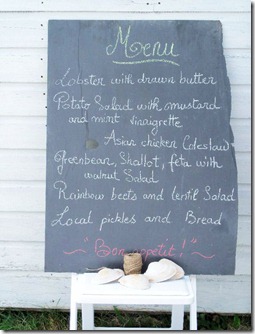 Menu
Lobster with drawn butter
Potato Salad with mustard
and mint vinaigrette
Asian chicken Coleslaw
Greenbean, Shallot, feta with
walnut Salad
Rainbow beets and lentil Salad
Local pickles and Bread
~ "Bon appetit!" ~